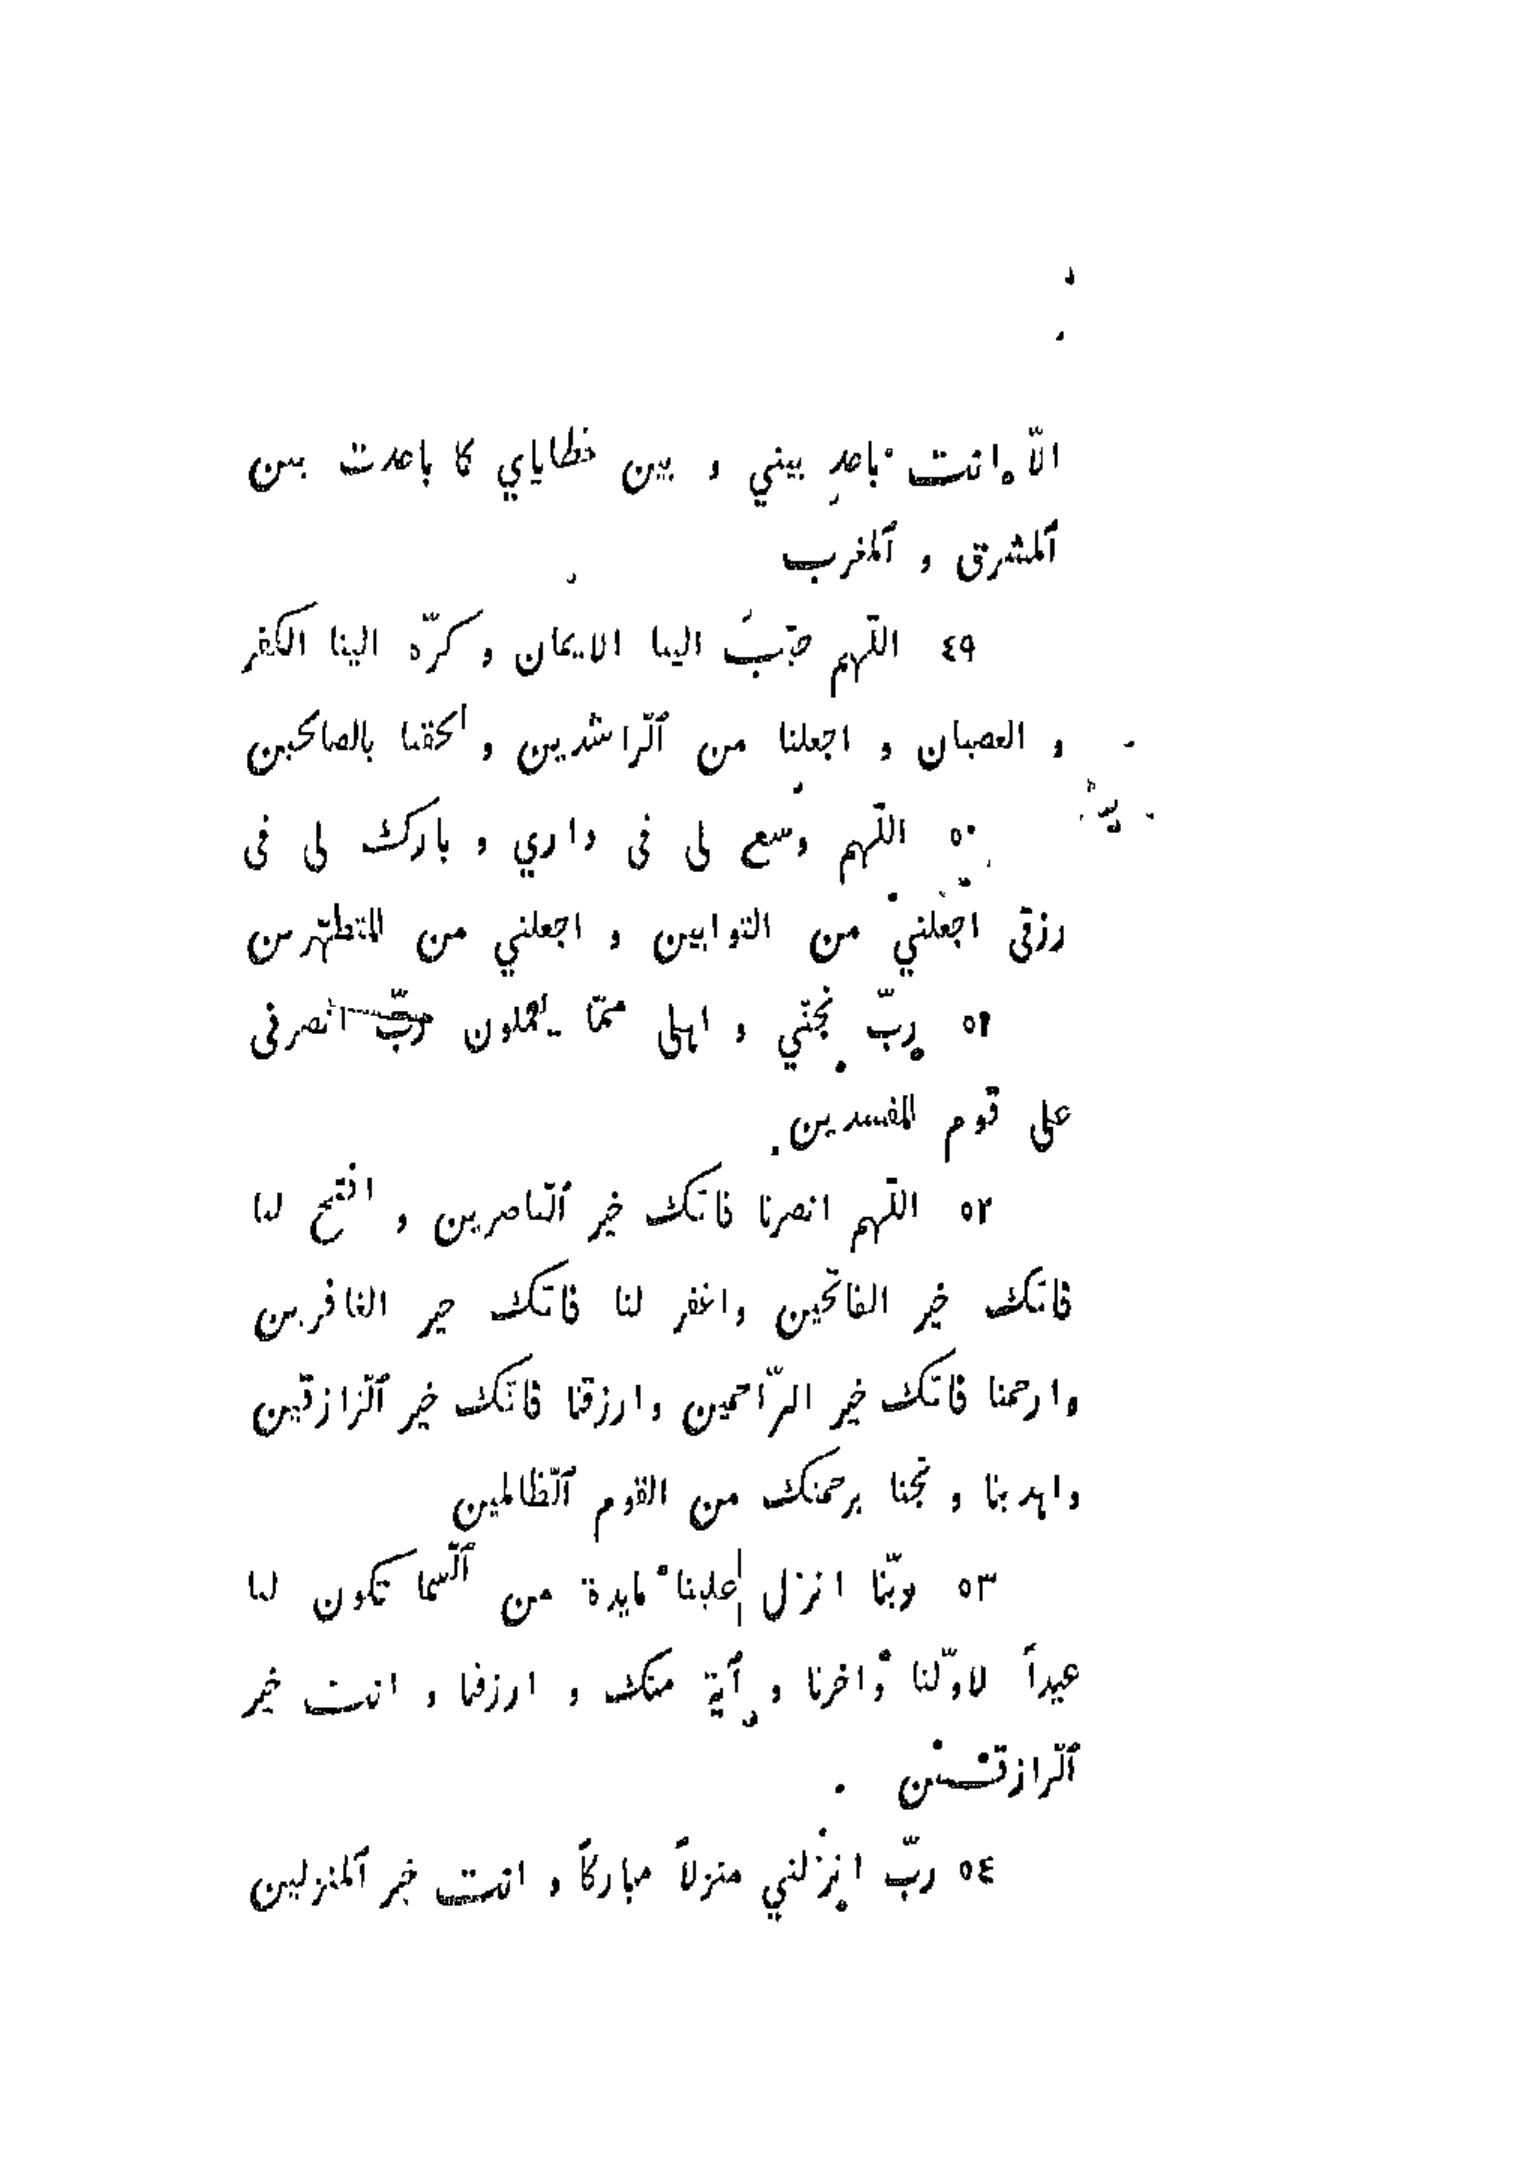 الّا انت باعد بيني و بين خطاياي كما باعدت بين
ٱلمشرق و ٱلمغرب
٤٩ اللّهم حبّب الينا الايمان و كرّه الينا الكفر
و العصيان و اجعلنا من ٱلرّاشدين و الحقنا بالصالحين
٥٠ اللّهم وسّع لى فى داري و بارك لى فى
رزقى اجعلني من التوابين و اجعلني من المتطهّرين
٥١ ربّ نجّني و اهلى ممّا يعملون ربّ انصرنى
على قوم المفسدين.
٥٢ اللّهم انصرنا فانّك خير ٱلنّاصرين و افتح لنا
فانّك خير الفاتحين واغفر لنا فانّك خير الغافرين
وارحمنا فانّك خير الرّاحمين وارزقنا فانّك خير ٱلرّازقين
واهدنا و نجّنا برحمتك من القوم ٱلظّالمين
٥٣ ربّنا انزل علينا مايدة من ٱلسّما تكون لنا
عيداً لاوّلنا واخرنا و آية منك و ارزقنا و انت خير
ٱلرّازقين .
٥٤ ربّ انزلني منزلاً مباركاً و انت خير ٱلمنزلين